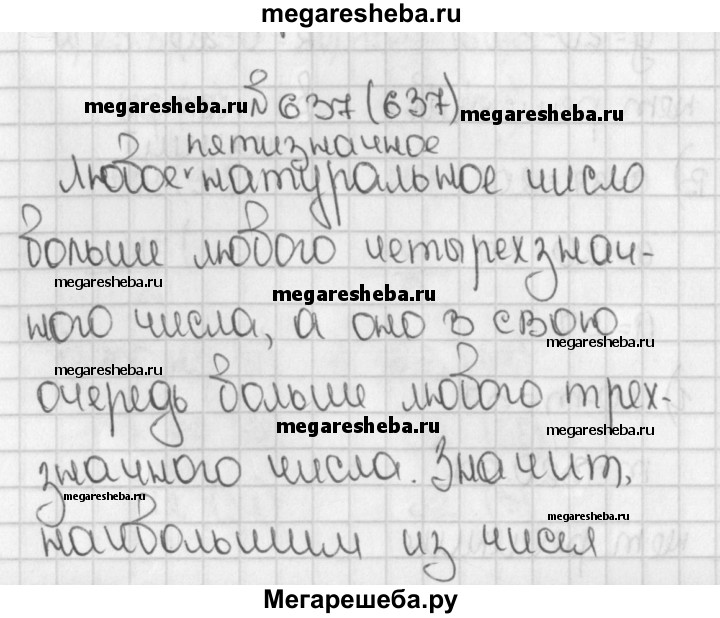 megaresheba.ru
№ 637 (637)
megaresheba.ru
megaresheba.ru
пятизначное
Любое натуральное число
больше любого четырехзнач-
megaresheba.ru
megaresheba.ru
ного числа, а оно в свою
megaresheba.ru
megaresheba.ru
очередь больше любого трех-
megaresheba.ru
megaresheba.ru
значного числа. Значит,
megaresheba.ru
megaresheba.ru
наибольшим из чисел
Мегарешеба.ру